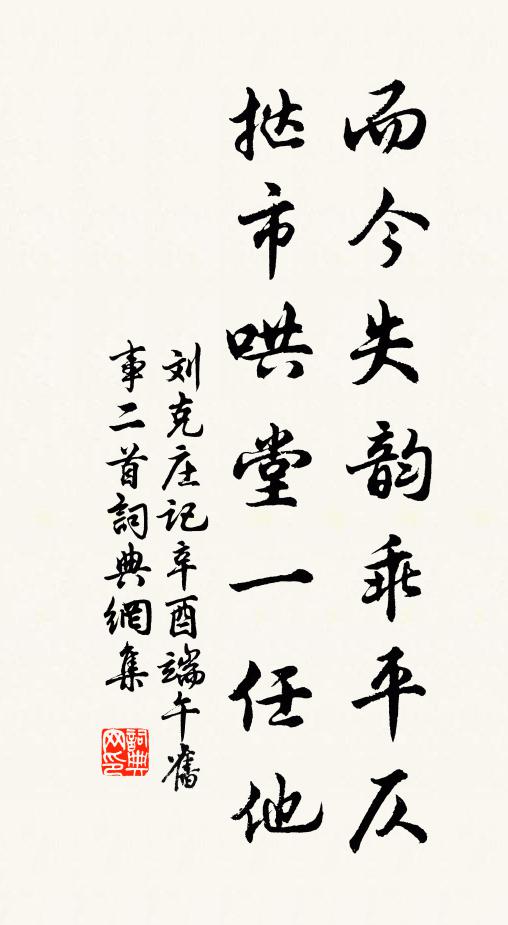 而今失韵乖平仄
挞市哄堂一任他
刘克庄记辛酉端午舊
事二首詞典網集
詞典
网印